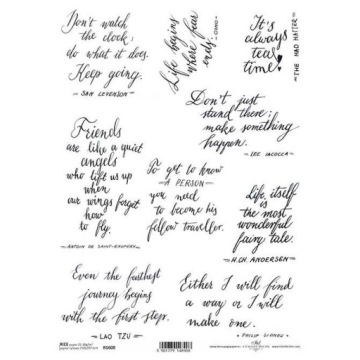 Don't watch
the clock;
do what it does.
Keep going.
- SAM LEVENSON -
Life begins
where fear
ends.
- OSHO -
It's
always
tea
time!
- THE MAD HATTER -
Don't just
stand there;
make something
happen.
- LEE IACOCCA
Friends
are like a quiet
angels
who lift us up
when
our wings forget
how
to fly.
- ANTOIN DE SAINT-EXUPÉRY -
To get to know
A PERSON -
you need
to become his
fellow traveller.
Life itself
is the most
wonderful
fairy tale.
- H.CH. ANDERSEN -
Even the farthest
journey begins
with the first step.
- LAO TZU -
Either I will find
a way or I will
make one.
- PHILIP SIDNEY -